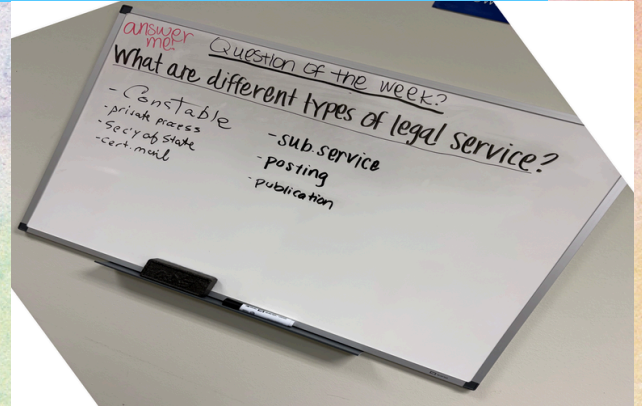 answer
me!
Question of the week?
What are different types of legal service?
- Constable
- private process
- Sec'y of State
- cert. mail
- sub. service
- posting
- publication